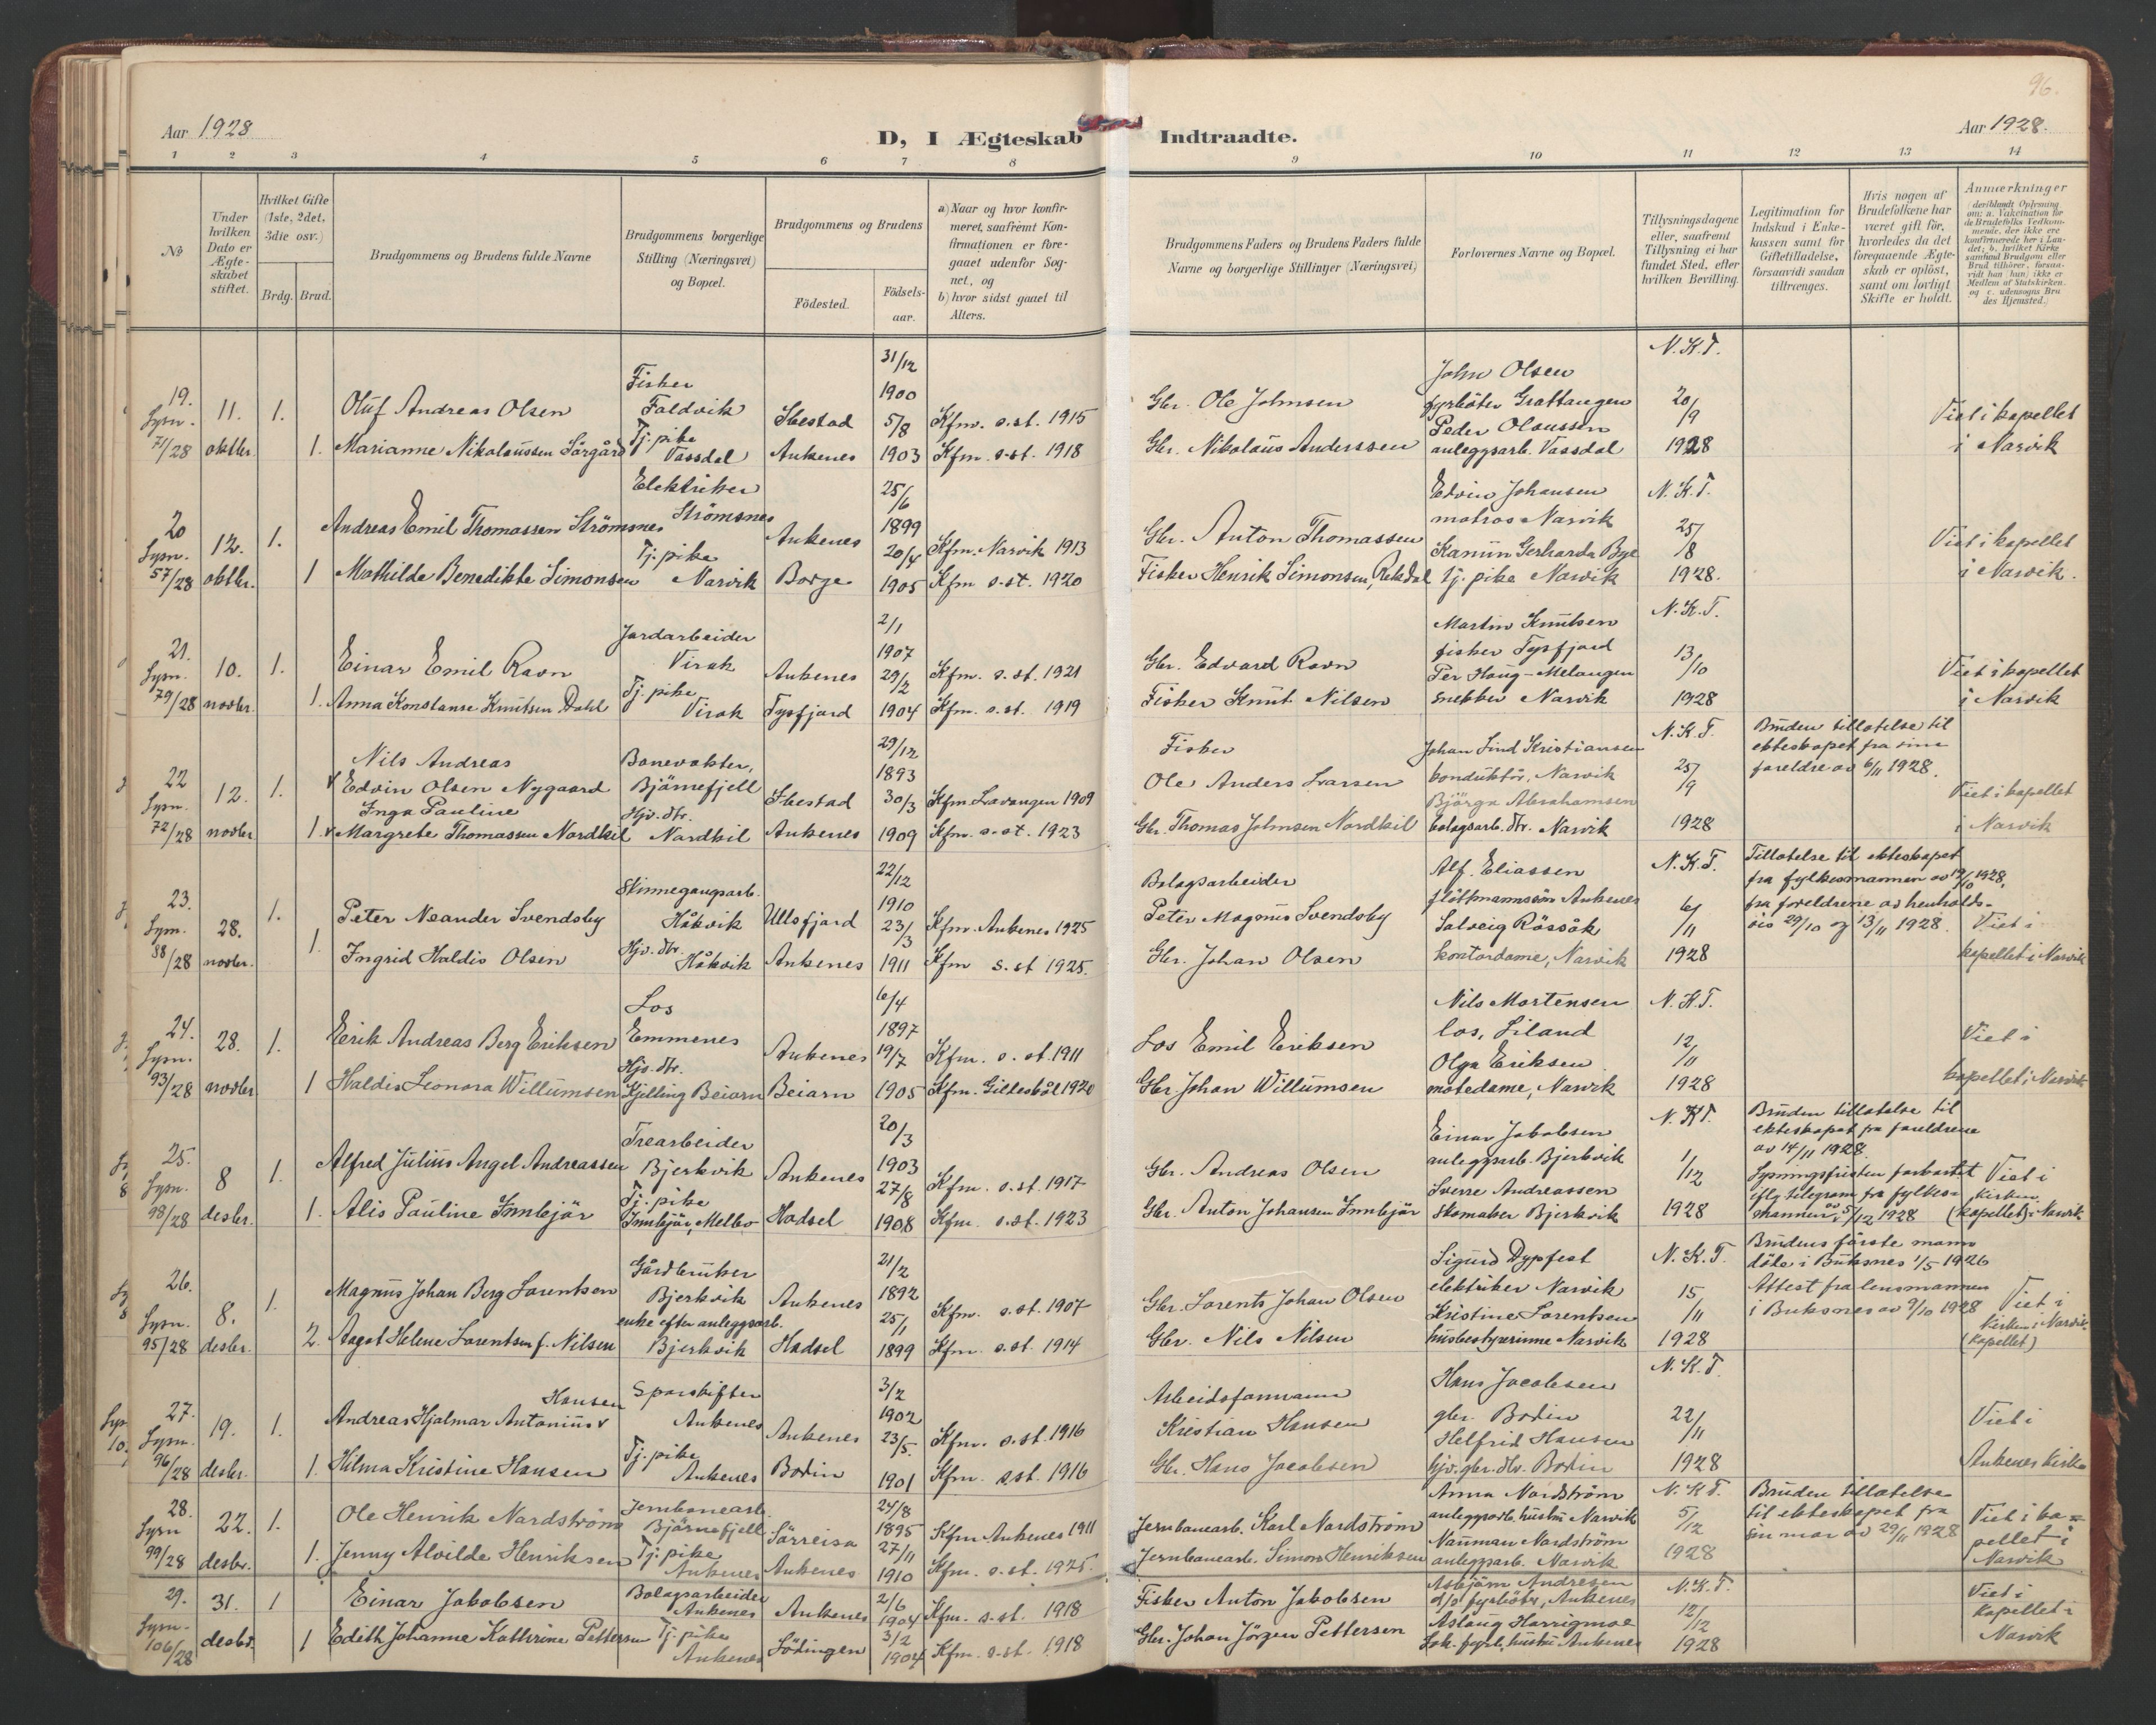 96.
Aar 1928
D, I Ægteskab Indtraadte.
Aar 1928.
1 2 3 4 5 6 7 8 9 10 11 12 13 14
No
Under hvilken Dato er Ægteskabet stiftet.
Hvilket Gifte (1ste, 2det, 3die osv.)
Brdg. Brud.
Brudgommens og Brudens fulde Navne
Brudgommens borgerlige Stilling (Næringsvei) og Bopæl.
Brudgommens og Brudens
Födested.
Födselsaar.
a) Naar og hvor konfirmeret, saafremt Konfirmationen er foregaaet udenfor Sognet, og
b) hvor sidst gaaet til Alters.
Brudgommens Faders og Brudens Faders fulde Navne og borgerlige Stillinger (Næringsvei)
Forlovernes Navne og Bopæl.
Tillysningsdagene eller, saafremt Tillysning ei har fundet Sted, efter hvilken Bevilling.
Legitimation for Indskud i Enkekassen samt for Giftetilladelse, forsaavidt saadan tiltrænges.
Hvis nogen af Brudefolkene har været gift för, hvorledes da det foregaaende Ægteskab er oplöst, samt om lovligt Skifte er holdt.
Anmærkninger (deriblandt Oplysning om: a. Vakcination for de Brudefolks Vedkommende, der ikke ere konfirmerede her i Landet; b. hvilket Kirkesamfund Brudgom eller Brud tilhörer, forsaavidt han (hun) ikke er Medlem af Statskirken, og c. udensogns Brudes Hjemsted.)
19. Lysn. 71/28
11. oktbr.
1. Oluf Andreas Olsen
Fisker Foldvik
Ibestad 31/12 1900 Kfm. s.st. 1915
Gbr. Ole Johnsen
John Olsen fyrböter Grattangen
N.K.T. 20/9 1928
1. Marianne Nikolaussen Sörgård
Tj. pike Vassdal
Ankenes 5/8 1903 Kfm. s.st. 1918
Gbr. Nikolaus Anderssen
Peder Olaussen anleggsarb. Vassdal
Viet i kapellet i Narvik
20 Lysn. 57/28
12. oktbr.
1. Andreas Emil Thomassen Strömsnes
Elektriker Strömsnes
Ankenes 25/6 1899 Kfm. Narvik 1913
Gbr. Anton Thomassen
Edvin Johansen matros Narvik
N.K.T. 25/8 1928.
1 Mathilde Benedikte Simonsen
Tj. pike Narvik
Borge 20/4 1905 Kfm s.st. 1920
Fisker Henrik Simonsen, Rekdal
Kanun Gerharda Bye tj. pike Narvik
Viet i kapellet i Narvik.
21. Lysn. 79/28
10. novbr.
1. Einar Emil Ravn
Jordarbeider Virak
Ankenes 2/1 1907 Kfm. s.st. 1921
Gbr. Edvard Ravn
Martin Knutsen fisker Tysfjord
N.K.T. 13/10 1928
1. Anna Konstanse Knutsen Dahl
Tj. pike Virak
Tysfjord 29/2 1904 Kfm. s.st. 1919
Fisker Knut Nilsen
Per Haug-Melangen snekker Narvik
Viet i kapellet i Narvik
22 Lysn. 72/28
12. novbr
1. Nils Andreas Edvin Olsen Nygaard
Banevokter, Bjørnefjell
Ibestad 29/12 1893 Kfm Lavangen 1909
Fisker Ole Anders Larsen
Johan Lind Kristiansen konduktör, Narvik
N.K.T. 25/9 1928
Bruden tillatelse til ekteskapet fra sine foreldre av 6/11 1928.
1. Inga Pauline Margrete Thomassen Nordkil
Hjv. dtr. Nordkil
Ankenes 30/3 1909 Kfm. s.st. 1923
Gbr. Thomas Johnsen Nordkil
Björga Abrahamsen bolagsarb. dtr. Narvik
Viet i kapellet i Narvik
23. Lysn. 88/28
28. novbr.
1. Peter Neander Svendsby
Skinnegangsarb. Håkvik
Ullsfjord 22/12 1910 Kfm. Ankenes 1925
Bolagsarbeider Peter Magnus Svendsby
Alf. Eliassen flöttmannssön Ankenes
N.K.T. 6/11 1928
Tillatelse til ekteskapet fra fylkesmannen av 12/10 1928, fra foreldrene av henholdsvis 29/10 og 13/11 1928.
1. Ingrid Haldis Olsen
Hjv. dtr. Håkvik
Ankenes 23/3 1911 Kfm s.st 1925.
Gbr. Johan Olsen
Solveig Rössåk kontordame, Narvik
Viet i kapellet i Narvik
24. Lysn. 93/28
28. novbr
1. Erik Andreas Berg Eriksen
Los Emmenes
Ankenes 6/4 1897 Kfm. s.st. 1911
Los Emil Eriksen
Nils Mortensen los, Liland
N.K.T. 12/11 1928
1 Haldis Leonora Willumsen
Hjv. dtr. Kjelling Beiarn
Beiarn 19/7 1905 Kfm. Gildeskål 1920
Gbr Johan Willumsen
Olga Eriksen motedame, Narvik
Viet i kapellet i Narvik
25. Lysn. 98/28
8 desbr.
1. Alfred Julius Angel Andreassen
Trearbeider Bjerkvik
Ankenes 20/3 1903 Kfm. s.st. 1917
Gbr. Andreas Olsen
Einar Jakobsen anleggsarb. Bjerkvik
N.K.T. 1/12 1928
Bruden tillatelse til ekteskapet fra foreldrene av 14/11 1928.
Lysningsfristen forkortet iflg telegram fra fylkesmannen av 5/12 1928
1. Alis Pauline Innlejär
Tj. pike Innlejär, Melbo
Hadsel 27/8 1908 Kfm. s.st. 1923
Gbr. Anton Johansen Innlejär
Sverre Andreassen skomaker Bjerkvik
Viet i kirken (kapellet) i Narvik
26. Lysn. 95/28
8. desbr.
1. Magnus Johan Berg Lorentsen
Gårdbruker Bjerkvik
Ankenes 21/2 1892 Kfm. s.st. 1907
Gbr. Lorents Johan Olsen
Sigurd Dypfest elektriker Narvik
N.K.T. 15/11 1928
Brudens förste mann döde i Buksnes 1/5 1926
Attest fra lensmannen i Buksnes av 9/10 1928
2. Aagot Helene Lorentsen f. Nilsen
enke efter anleggsarb. Bjerkvik
Hadsel 25/1 1899 Kfm. s.st. 1914
Gbr. Nils Nilsen
Kristine Lorentsen husbestyrerinne Narvik
Viet i kirken i Narvik (kapellet)
27. Lysn. 96/28
19. desbr.
1. Andreas Hjalmar Antonius Hansen
Sporskifter Ankenes
Ankenes 3/2 1902 Kfm. s.st. 1916
Arbeidsformann Kristian Hansen
Hans Jacobsen gbr. Bodin
N.K.T. 22/11 1928
1. Hilma Kristine Hansen
Tj. pike Ankenes
Bodin 23/5. 1901 Kfm. s.st. 1916
Gbr. Hans Jacobsen
Helfrid Hansen hjv. gbr. dtr. Bodin
Viet i Ankenes kirke
28. Lysn 99/28
22. desbr.
1. Ole Henrik Nordström
Jernbanearb. Björnefjell
Sörreisa 24/8 1895 Kfm Ankenes 1911
Jernbanearb. Karl Nordström
Anna Nordström anleggsarb. hustru Narvik
N.K.T. 5/12 1928
Bruden tillatelse til ekteskapet fra sin mor av 29/11 1928
1. Jenny Alvilde Henriksen
Tj. pike Ankenes
Ankenes 27/11 1910 Kfm. s.st. 1925.
Jernbanearb. Simon Henriksen
Nauman Nordström anleggsarb. Narvik
Viet i kapellet i Narvik
29. Lysn. 106/28
31. desbr.
1 Einar Jakobsen
Bolagsarbeider Ankenes
Ankenes 2/6 1904 Kfm. s.st. 1918
Fisker Anton Jakobsen
Asbjörn Andresen d/s fyrböter, Ankenes
N.K.T. 12/12 1928
1 Edith Johanne Kathrine Pettersen
Tj. pike Ankenes
Lödingen 3/2 1904 Kfm. s.st. 1918
Gbr. Johan Jörgen Pettersen
Aslaug Harrigmoe lok. fyrb. hustru Ankenes
Viet i kapellet i Narvik